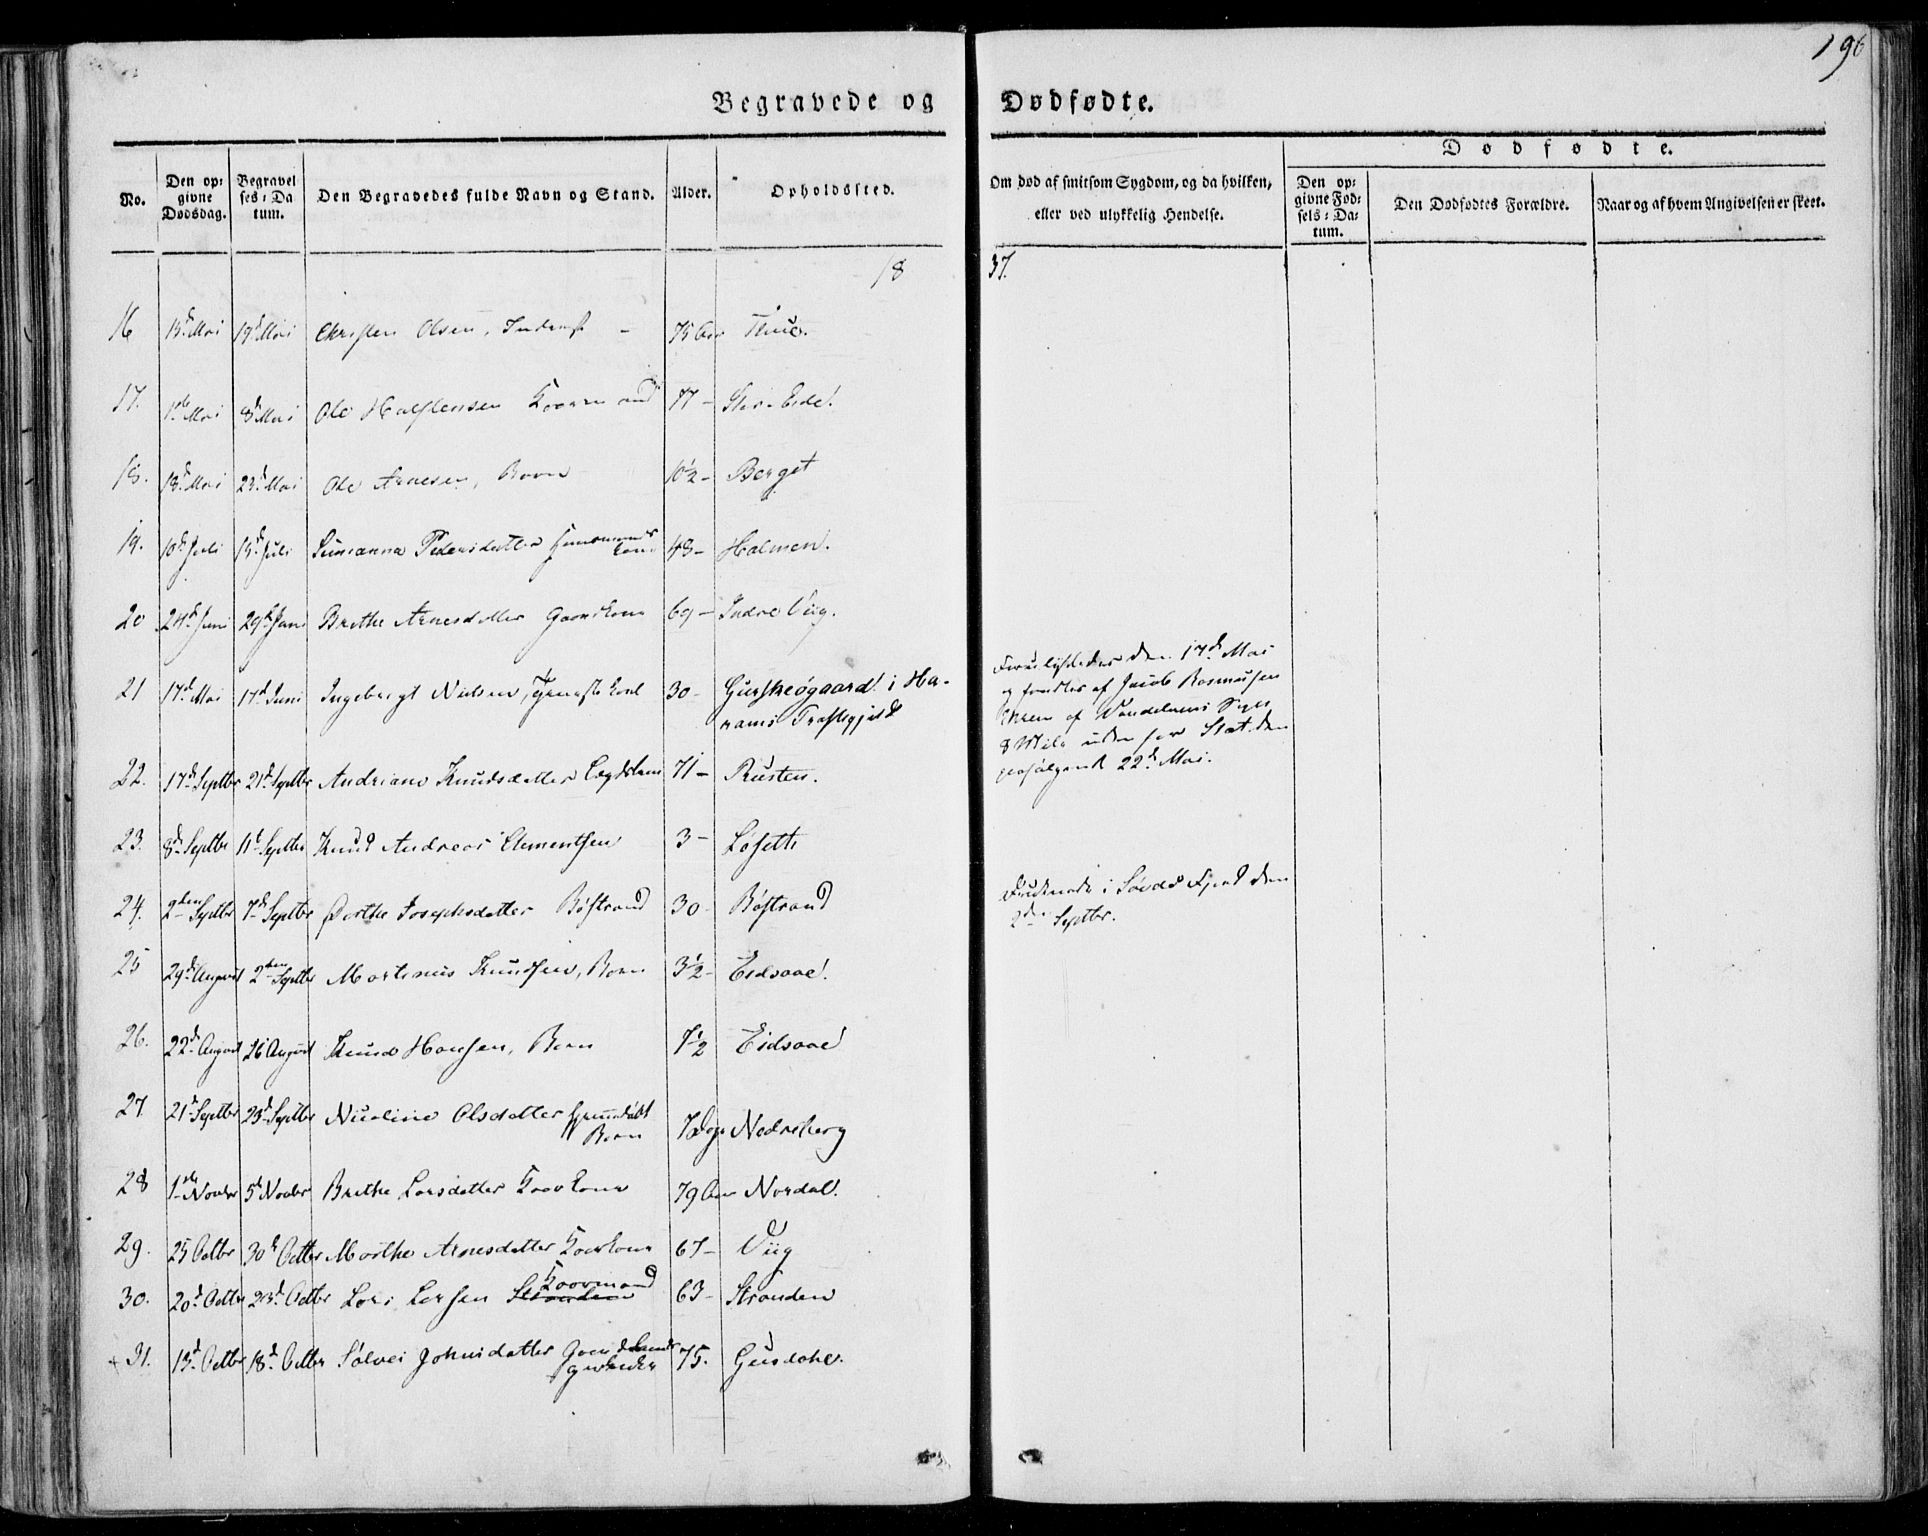 196
Begravede og Dødfødte.
No.
Den op-
givne
Dødsdag.
Begravel
ses-Da
tum.
Den Begravedes fulde Navn og Stand.
Alder.
Opholdssted.
Om død af smitsom Sygdom, og da hvilken,
eller ved ulykkelig Hendelse.
Dødfødte.
Den op-
givne Fød-
sels-Da-
tum.
Den Dødfødtes Forældre.
Naar og af hvem Angivelsen er skeet.
1837.
16 13d Mai 19d Mai Christen Olsen, 75 Aar
17. 1ste Mai 8d Mai Ole Halstensen Kaarmand 77 -
18. 18d Mai 22d Mai Ole Arnesen, Barn 10½ - Berget
19. 10d Juli 15d Juli Susanna Pedersdatter Huusmands
kone 48 - Holmen.
20 24d Juni 29d Juni Brethe Arnesdatter Gaardkone 69 - Indre Viig.
21 17d Mai 17d Juni Ingebregt Nielsen, 30 - Gurskeøgaard i Ha-
rams Præstegjeld
Forulykkedes den 17d Mai
og fandtes af Jacob Rasmussen
8 Mile uden for Stat den
22d Mai.
22. 17d Septbr 21d Septbr Andriane Knudsdatter 71 - Rusten.
23. 8d Septbr 11d Septbr Knud Andreas Clementsen 3 - Løseth
24. 2den Septbr 7d Septbr Dorthe Josephsdatter Bøstrand 30 - Bøstrand
Druknede i Søvde Fjord den
2den Septbr.
25 29d August 2den Septbr Martinus Knudsen, Barn 3½ - Eidsaae.
26. 22d August 26 August Knud Hansen, Barn 7½ Eidsaae
27. 21d Septbr 23d Septbr Nicoline Olsdatter hjemmedøbt
Barn 7 Dage Nedreberg
28 1ste Novbr 5d Novbr Brethe Larsdatter Kaarkone 79 Aar Nordal.
29. 25 Octbr 30d Octbr Marthe Arnesdatter Kaarkone 67 - Viig
30. 20d Octbr 23d Octbr Lars Larsen Stranden Kaarmand 63 - Stranden
31. 13d Octbr 18d Octbr Sølvei Johnsdatter 75. Gusdahl.